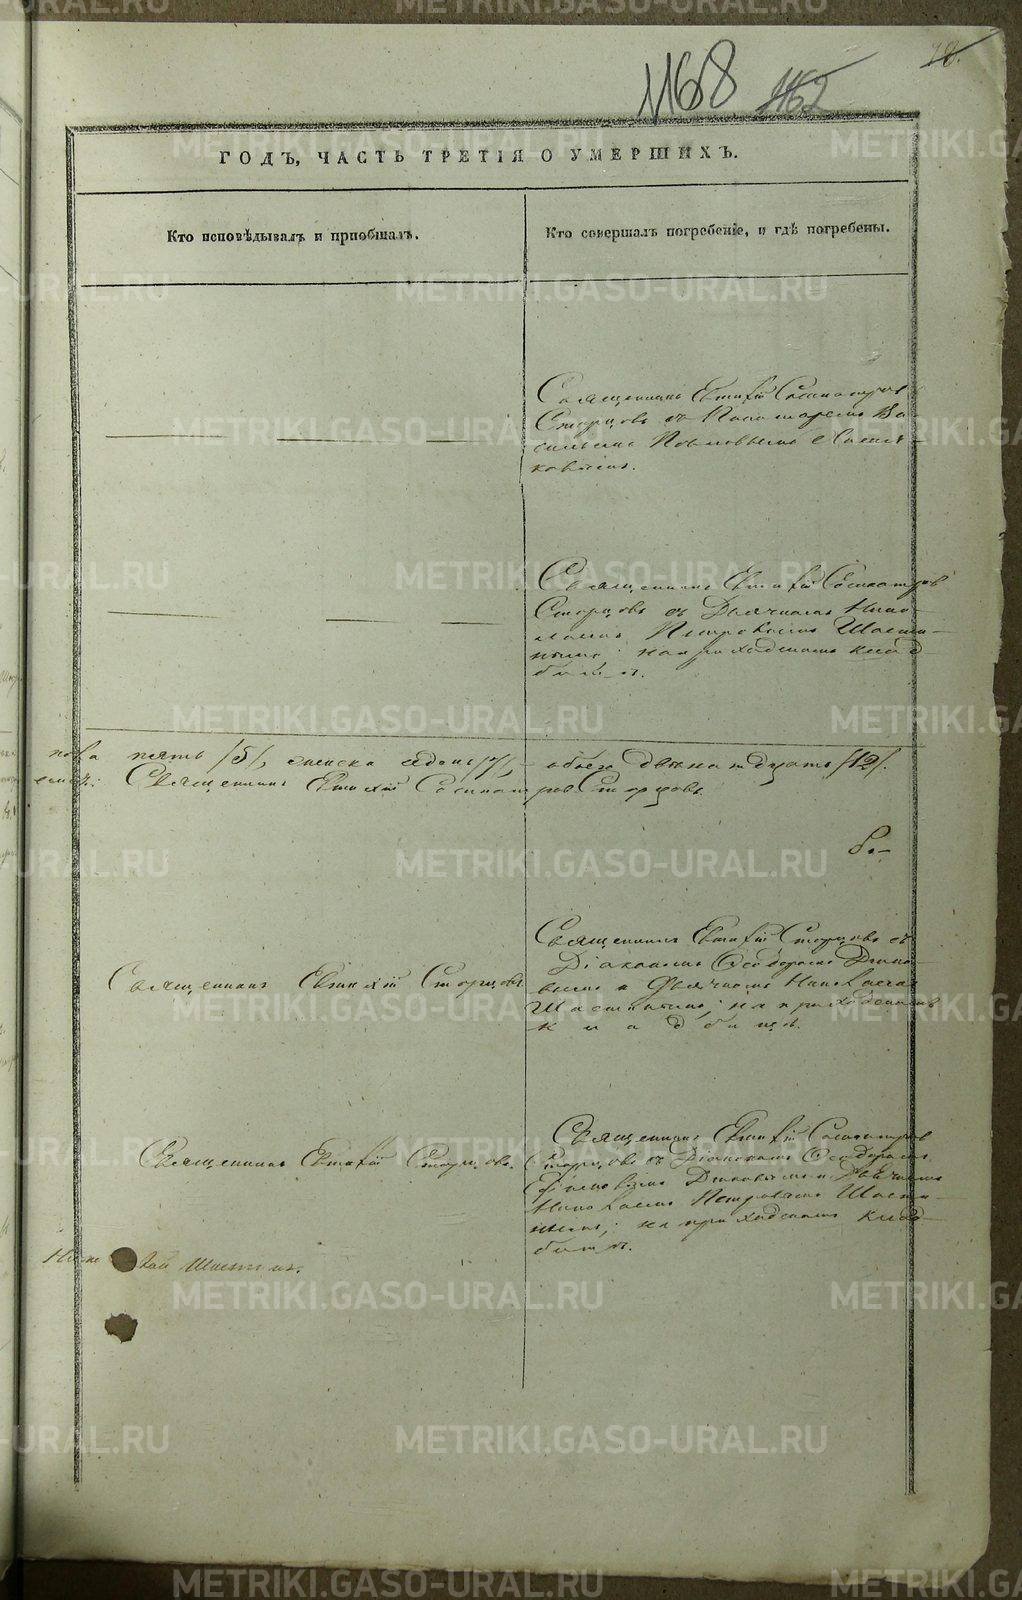 1168 1162
ГОДЪ, ЧАСТЬ ТРЕТІЯ О УМЕРШИХЪ.
Кто исповѣдывалъ и пріобщалъ.
Кто совершалъ погребеніе, и гдѣ погребены.
Священникъ Евтихій Сосипатров
Старцовъ съ Пономаремъ Ва-
сильемъ Павловымъ
ковымъ.
Священникъ Евтихій Сосипатров
Старцовъ съ Дьячкомъ Нико-
лаемъ Петровымъ Шасти-
нымъ; на приходскомъ клад-
бищѣ.
пола пять /5/, женска седмь /7/, – обоего двѣнатдцать /12/.
Священникъ Евтихій Сосипатров Старцовъ
Священникъ Евтихій Старцовъ съ
Діакономъ Ѳеодоромъ Дьяко-
вымъ и Дьячкомъ Николаемъ
Шастинымъ; на приходскомъ
кладбищѣ.
Священникъ Евтихій Старцовъ
Священникъ Евтихій Сосипатров
Старцовъ съ Діакономъ Ѳеодоромъ
Дьяковымъ и Дьячкомъ
Николаемъ Петровымъ Шасти-
нымъ; на приходскомъ клад-
бищѣ.
Священникъ Евтихій Старцовъ.
Николай Шастинъ.
METRIKI.GASO-URAL.RU